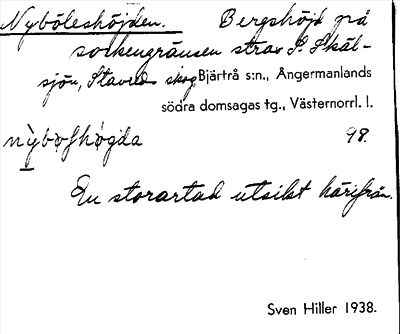 Nyböleshöjden. Bergshöjd på
sockengränsen strax S. Skäl-
sjön, Stavred skog Bjärtrå s:n., Ångermanlands
södra domsagas tg., Västernorrl. l.
98.
En storartad utsikt härifrån.
Sven Hiller 1938.